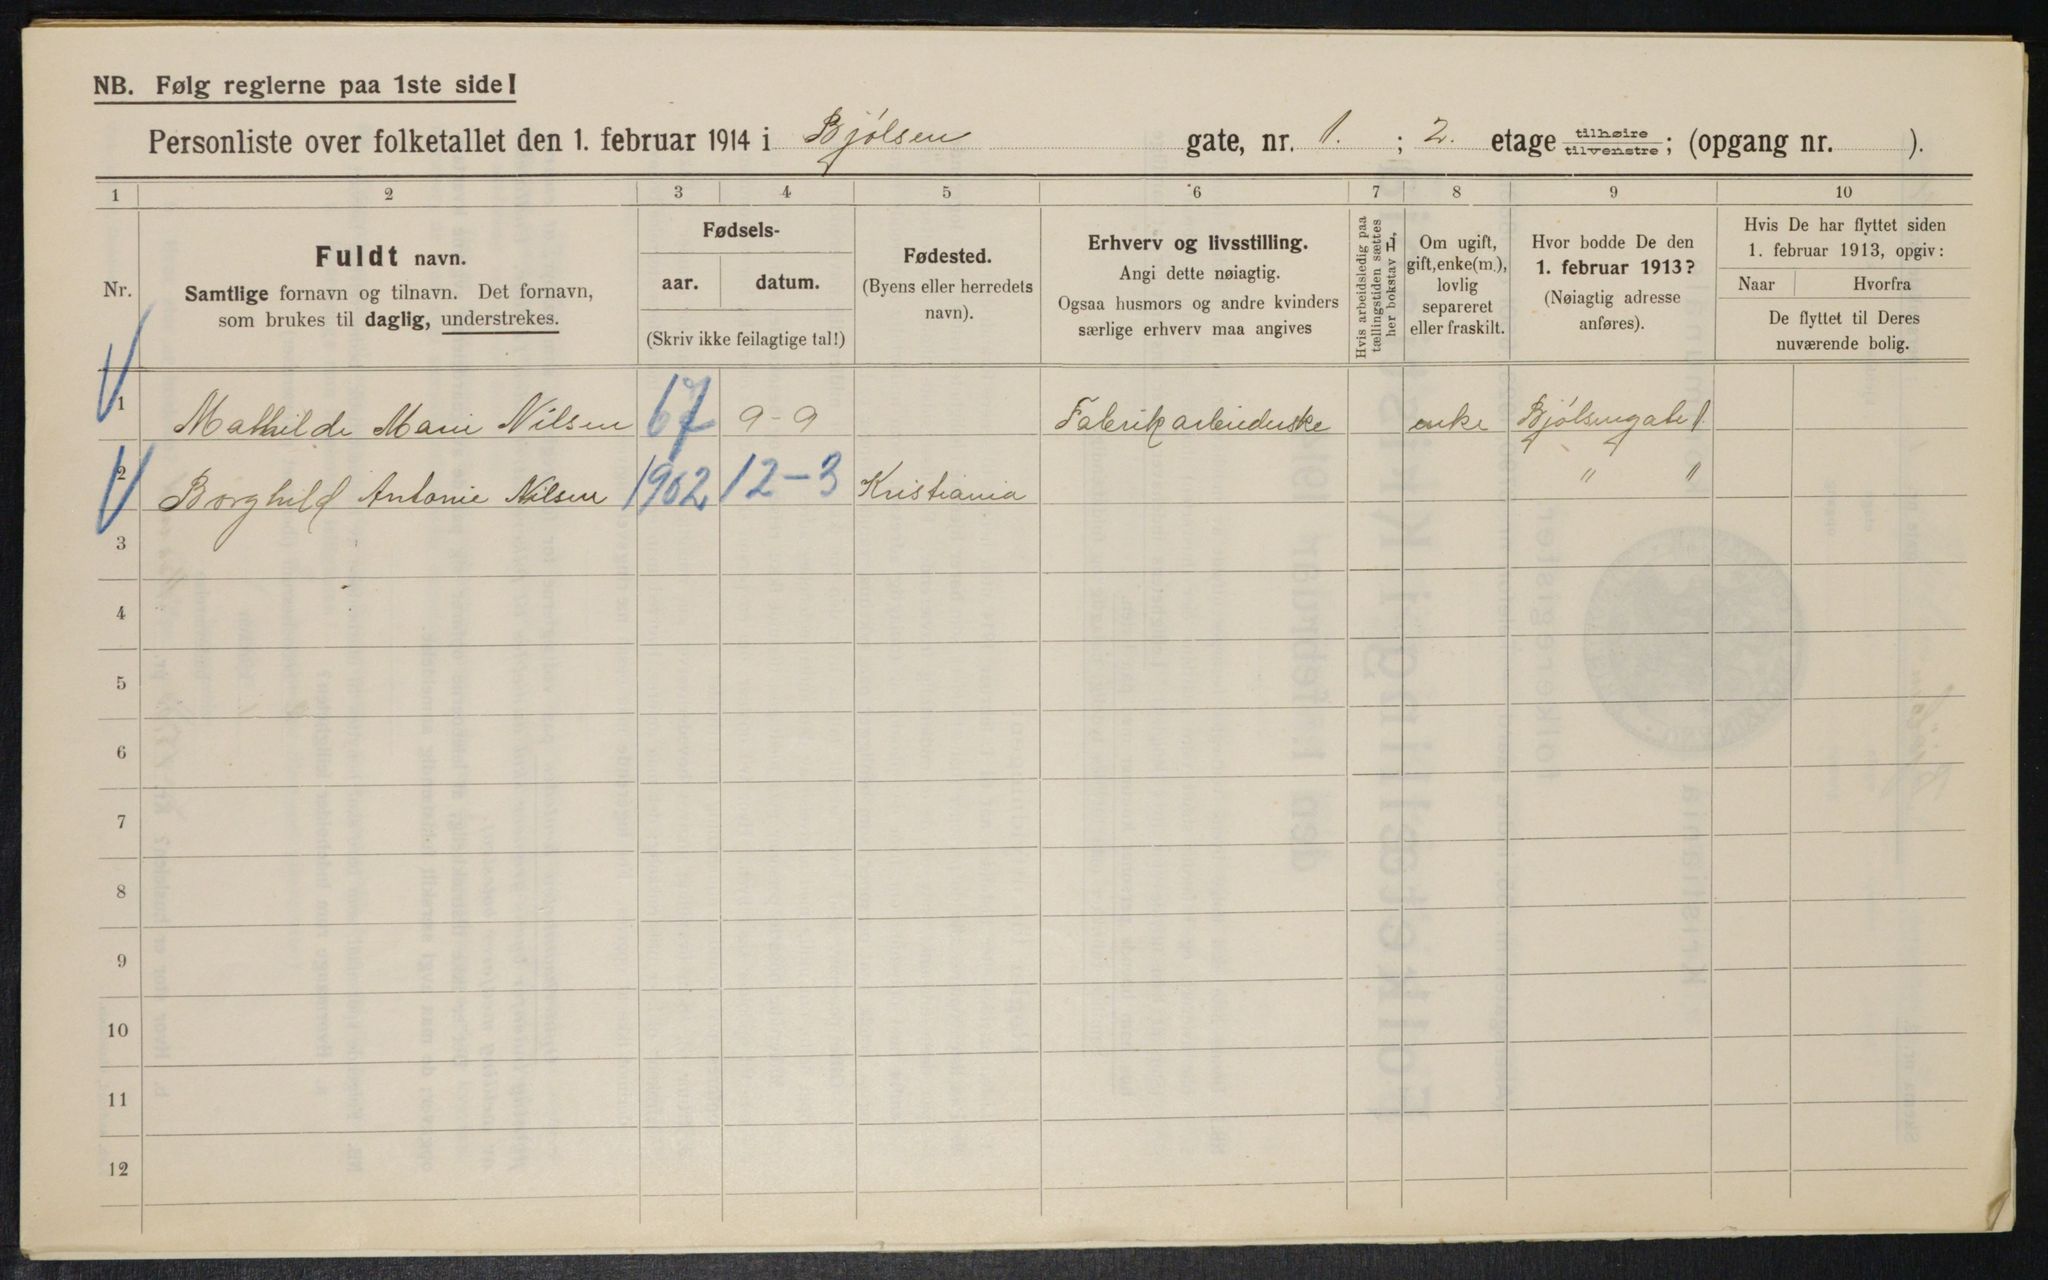 NB. Følg reglerne paa 1ste side!
Personliste over folketallet den 1. februar 1914 i Bjølsen gate, nr. 1. ; 2. etage tilhøire/tilvenstre; (opgang nr. ).
1 2 3 4 5 6 7 8 9 10
Nr.
Fuldt navn.
Samtlige fornavn og tilnavn. Det fornavn,
som brukes til daglig, understrekes.
Fødsels-
aar. datum.
(Skriv ikke feilagtige tal!)
Fødested.
(Byens eller herredets
navn).
Erhverv og livsstilling.
Angi dette nøiagtig.
Ogsaa husmors og andre kvinders
særlige erhverv maa angives
Hvis arbeidsledig paa
tællingstiden sættes
her bokstav L,
Om ugift,
gift, enke(m.),
lovlig
separeret
eller fraskilt.
Hvor bodde De den
1. februar 1913?
(Nøiagtig adresse
anføres).
Hvis De har flyttet siden
1. februar 1913, opgiv:
Naar Hvorfra
De flyttet til Deres
nuværende bolig.
1 Mathilde Marie Nilsen 67 9-9 Fabrikarbeiderske enke Bjølsengate 1.
2 Borghild Antonie Nilsen 1902 12-3 Kristiania " "
3
4
5
6
7
8
9
10
11
12